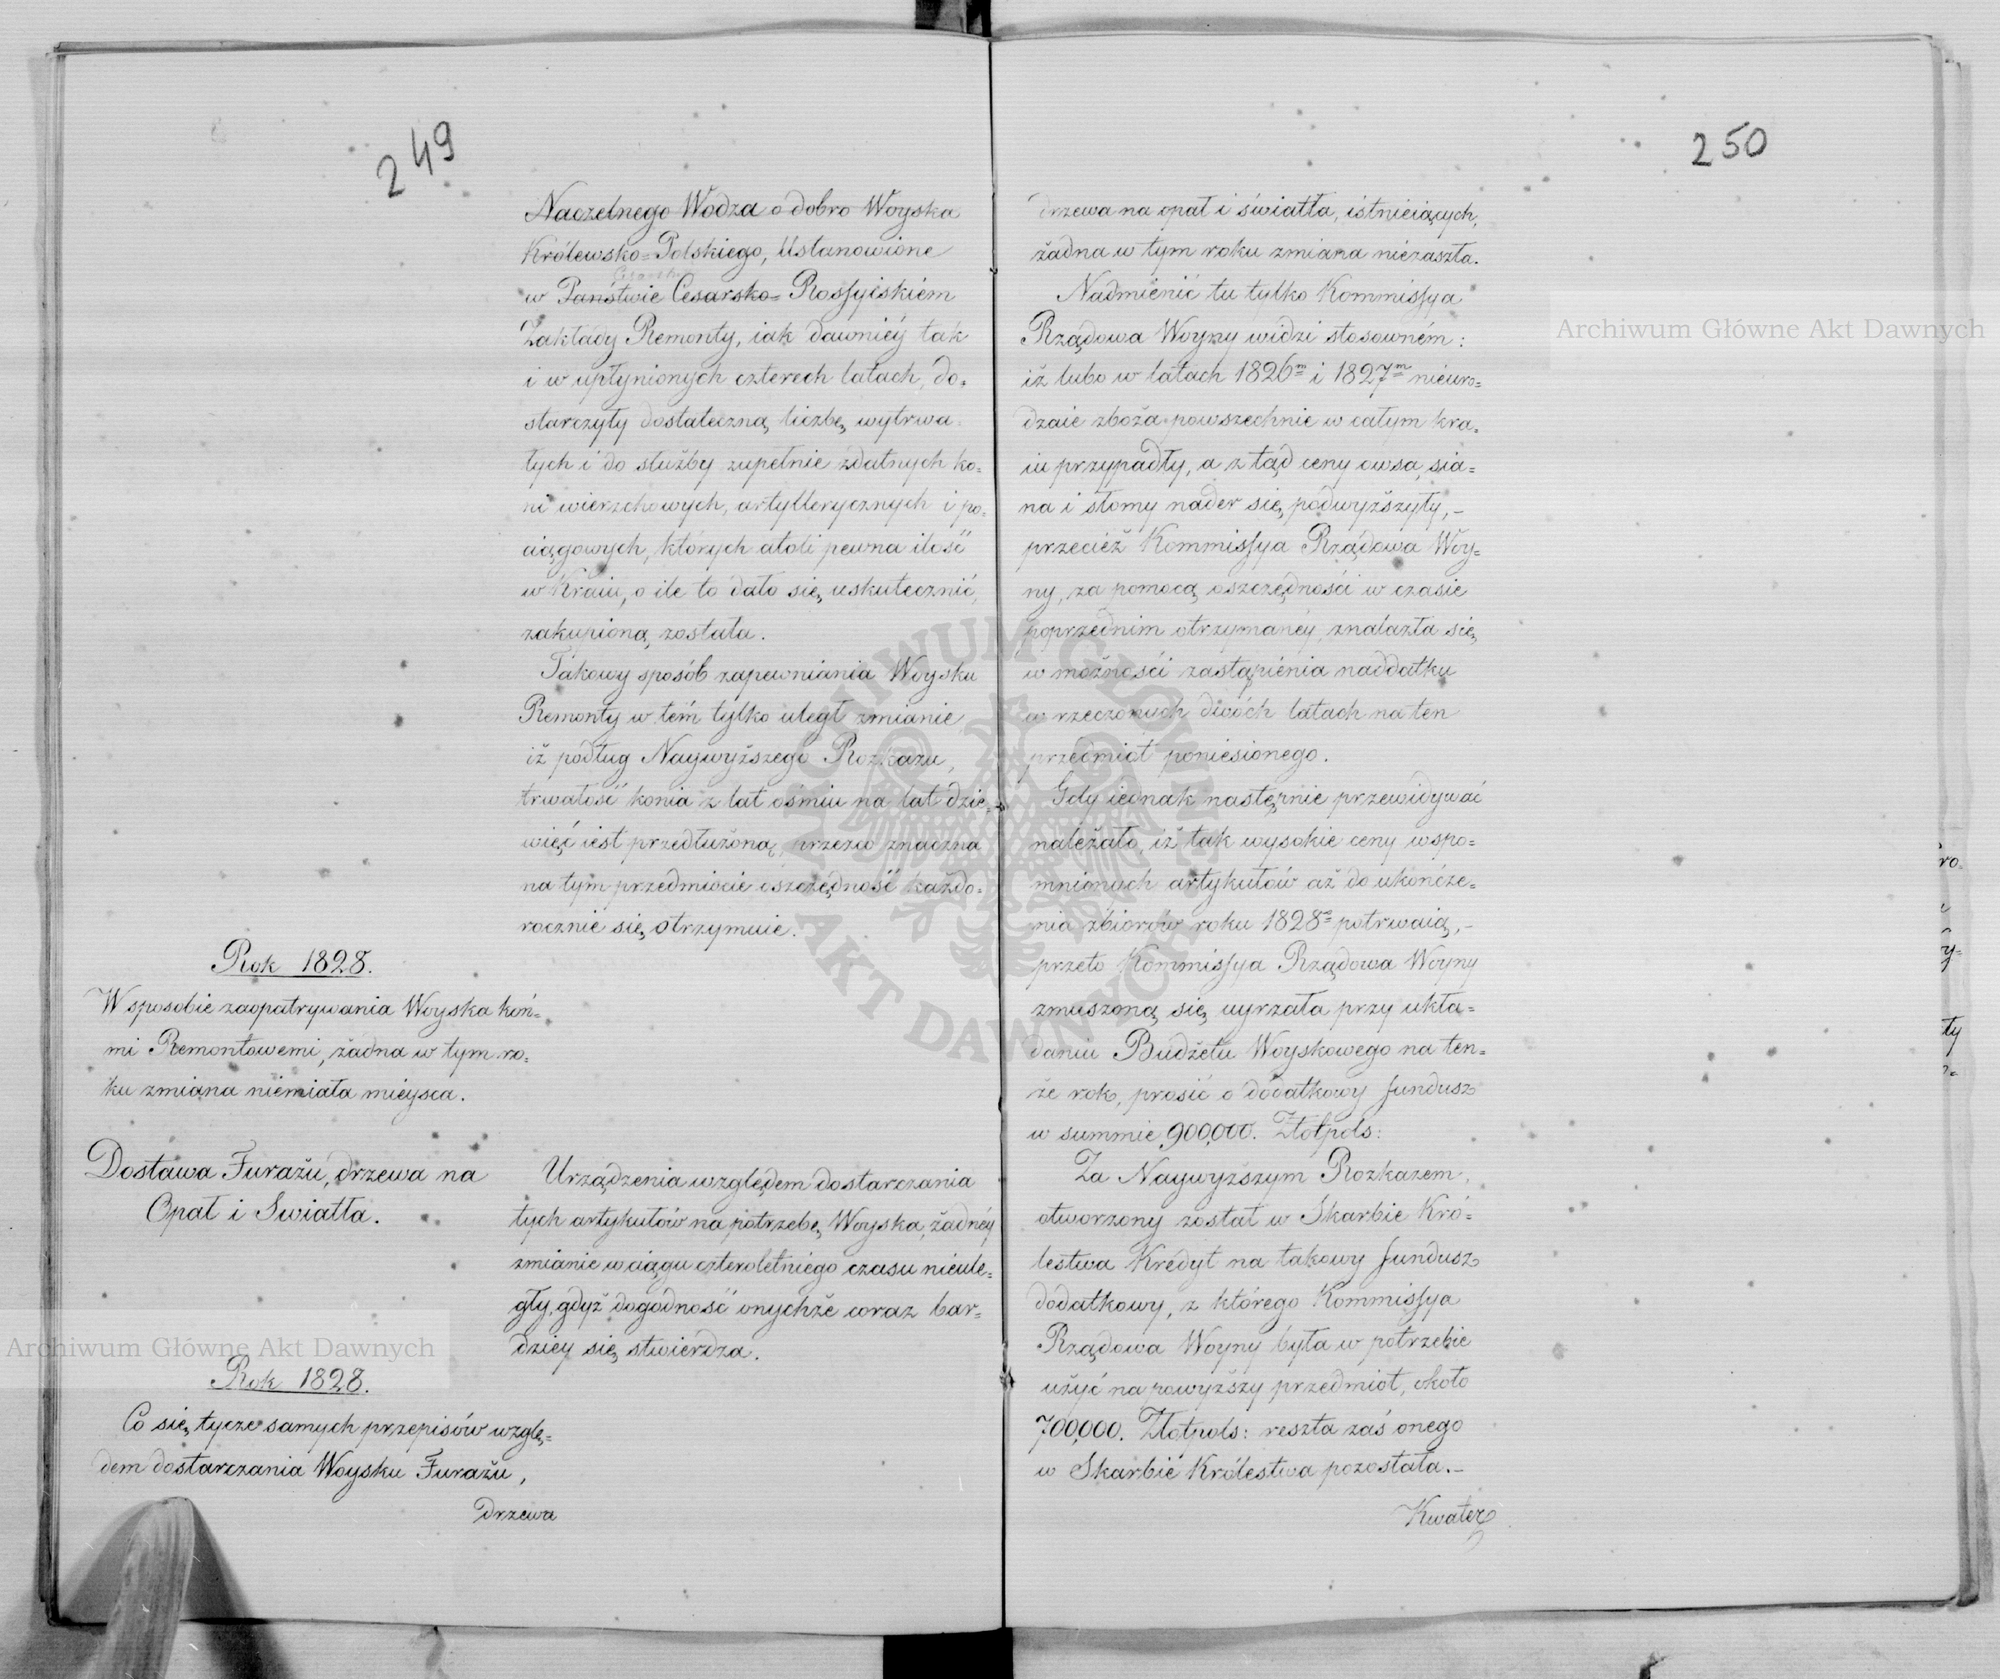 249
Naczelnego Wodza o dobro Woyska
Królewsko=Polskiego, Ustanowione
w Państwie Cesarsko= Rossyiskiém
Zakłady Remonty, iak dawniéy tak
i w upłynionych czterech latach, do=
starczyły dostateczną liczbę wytrwa=
łych i do służby zupełnie zdatnych ko=
ni wierzchowych, artyllerycznych i po=
ciągowych, których atoli pewna ilość
w Kraiu, o ile to dało się uskutecznić,
zakupioną została.
Takowy sposób zapewniania Woysku
Remonty w tém tylko uległ zmianie
iż podług Naywyższego Rozkazu,
trwałość konia z lat ośmiu na lat dzie=
więć iest przedłużoną, przezco znaczna
na tym przedmiocie oszczędność każdo=
rocznie się otrzymuie.
Rok 1828.
W sposobie zaopatrywania Woyska koń=
mi Remontowemi, żadna w tym ro=
ku zmiana niemiała mieysca.
Dostawa Furażu, drzewa na
Opał i Swiatła.
Urządzenia względem dostarczania
tych artykułów na potrzebę Woyska, żadnéy
zmianie w ciągu czteroletniego czasu nieule=
gły, gdyż dogodność onychże coraz bar=
dziey się stwierdza.
Rok 1828.
Co się tycze samych przepisów wzglę=
dem dostarczania Woysku Furażu,
drzewa
250
drzewa na opał i światła, istnieiących,
żadna w tym roku zmiana niezaszła.
Nadmienić tu tylko Kommissya
Rządowa Woyny widzi stosowném:
iż lubo w latach 1826m i 1827m nieuro=
dzaie zboża powszechnie w całym kra=
iu przypadły, a z tąd ceny owsa, sia=
na i słomy nader się podwyższyły,—
przecież Kommissya Rządowa Woy=
ny, za pomocą oszczędności w czasie
poprzednim otrzymanéy, znalazła się
w możności zastąpienia naddatku
w rzeczonych dwóch latach na ten
przedmiot poniesionego.
Gdy iednak następnie przewidywać
należało, iż tak wysokie ceny wspo=
mnionych artykułów aż do ukończe=
nia zbiorów roku 1828º potrwaią,—
przeto Kommissya Rządowa Woyny
zmuszoną się uyrzała przy ukła=
daniu Budżetu Woyskowego na ten=
że rok, prosić o dodatkowy fundusz
w summie 900,000. Złotpols:
Za Naywyższym Rozkazem,
otworzony został w Skarbie Kró=
lestwa Kredyt na takowy fundusz
dodatkowy, z którego Kommissya
Rządowa Woyny była w potrzebie
użyć na powyższy przedmiot, około
700,000. Złotpols: reszta zaś onego
w Skarbie Królestwa pozostała.—
Kwater
Archiwum Główne Akt Dawnych
Archiwum Główne Akt Dawnych
ARCHIWUM GŁÓWNE AKT DAWNYCH